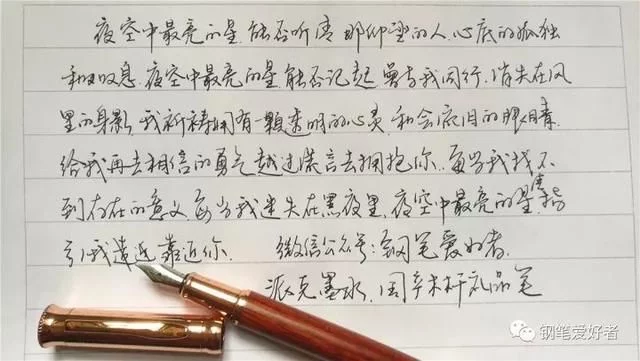 夜空中最亮的星,能否听清 那仰望的人,心底的孤独
和叹息.夜空中最亮的星,能否记起 曾与我同行,消失在风
里的身影.我祈祷拥有一颗透明的心灵,和会流泪的眼睛.
给我再去相信的勇气 越过谎言去拥抱你.每当我找不
到存在的意义,每当我迷失在黑夜里,夜空中最亮的星,请指
引我 靠近你. 微信公众号:钢笔爱好者.
派克墨水,国产木杆礼品笔
钢笔爱好者